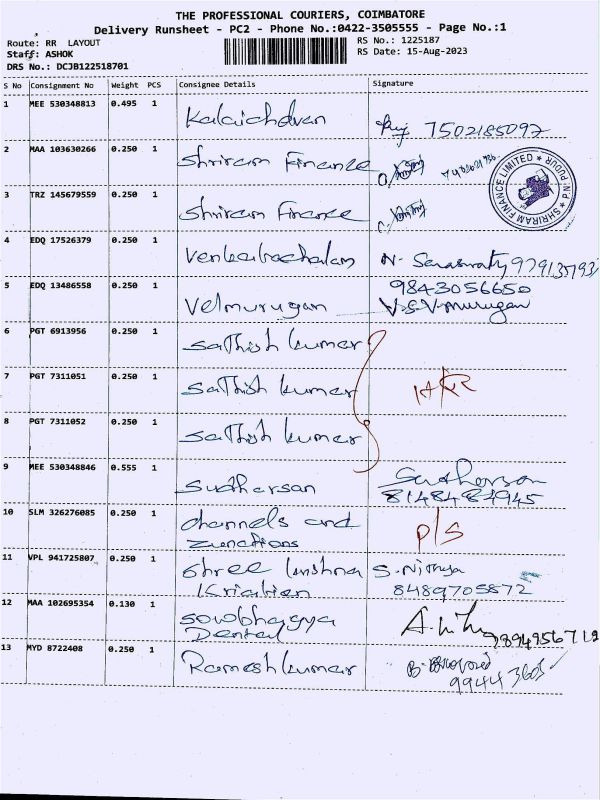 THE PROFESSIONAL COURIERS, COIMBATORE
Delivery Runsheet - PC2 - Phone No.:0422-3505555 - Page No.:1
Route: RR LAYOUT RS No.: 1225187
Staff: ASHOK RS Date: 15-Aug-2023
DRS No.: DCJB122518701
S No Consignment No Weight PCS Consignee Details Signature
1 MEE 530348813 0.495 1 Kalaichelvan 7502185097
2 MAA 103630266 0.250 1 Shriram Finance
3 TRZ 145679559 0.250 1 Shriram Finance
SHRIRAM FINANCE LIMITED * P.N PUDUR *
4 EDQ 17526379 0.250 1 Venkatachalam N. Saraswathy
5 EDQ 13486558 0.250 1 Velmurugan 9843056650
V.S.V.murugan
6 PGT 6913956 0.250 1 Sathish kumar
7 PGT 7311051 0.250 1 Sathish kumar
8 PGT 7311052 0.250 1 Sathish kumar
9 MEE 530348846 0.555 1 Sudhersan Sudherson
8148484945
10 SLM 326276085 0.250 1 channels and P/S
Junctions
11 VPL 941725807 0.250 1 Shree krishna S. Nithya
8489705872
12 MAA 102695354 0.130 1 Sowbhagya
Dental 9894956712
13 MYD 8722408 0.250 1 Ramesh kumar